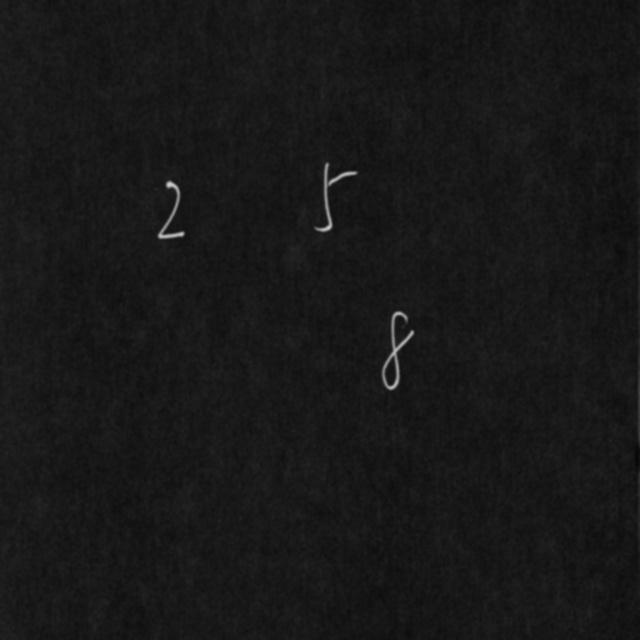 2 5
8